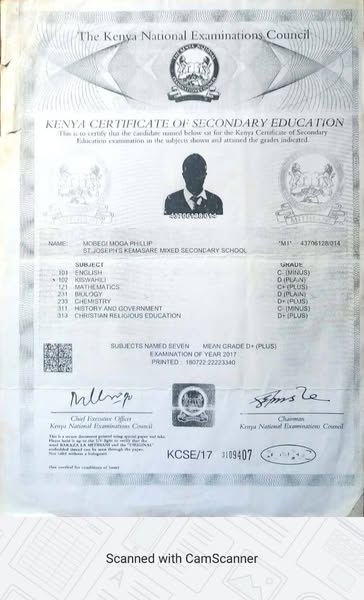 The Kenya National Examinations Council
KENYA CERTIFICATE OF SECONDARY EDUCATION
This is to certify that the candidate named below sat for the Kenya Certificate of Secondary
Education examination in the subjects shown and attained the grades indicated.
43706128/014
NAME: MOBEGI MOGA PHILLIP "M1" 43706128/014
ST.JOSEPH'S KEMASARE MIXED SECONDARY SCHOOL
SUBJECT GRADE
101 ENGLISH C- (MINUS)
102 KISWAHILI D (PLAIN)
121 MATHEMATICS C+ (PLUS)
231 BIOLOGY D (PLAIN)
233 CHEMISTRY D+ (PLUS)
311 HISTORY AND GOVERNMENT C- (MINUS)
313 CHRISTIAN RELIGIOUS EDUCATION D+ (PLUS)
SUBJECTS NAMED SEVEN MEAN GRADE D+ (PLUS)
EXAMINATION OF YEAR 2017
PRINTED: 180722:22223340
Chief Executive Officer Chairman
Kenya National Examinations Council Kenya National Examinations Council
This is a secure document printed using special paper and inks.
Please hold it up to the UV light to verify that the
word and the "ORIGINAL"
embedded thread can be seen through the paper.
Not valid without a hologram
KCSE/17 3109407
Scanned with CamScanner